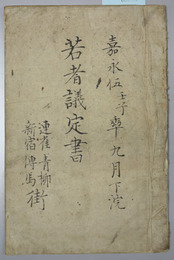 嘉永伍壬子年九月下浣
若者議定書
連雀青柳
新宿傳馬
街